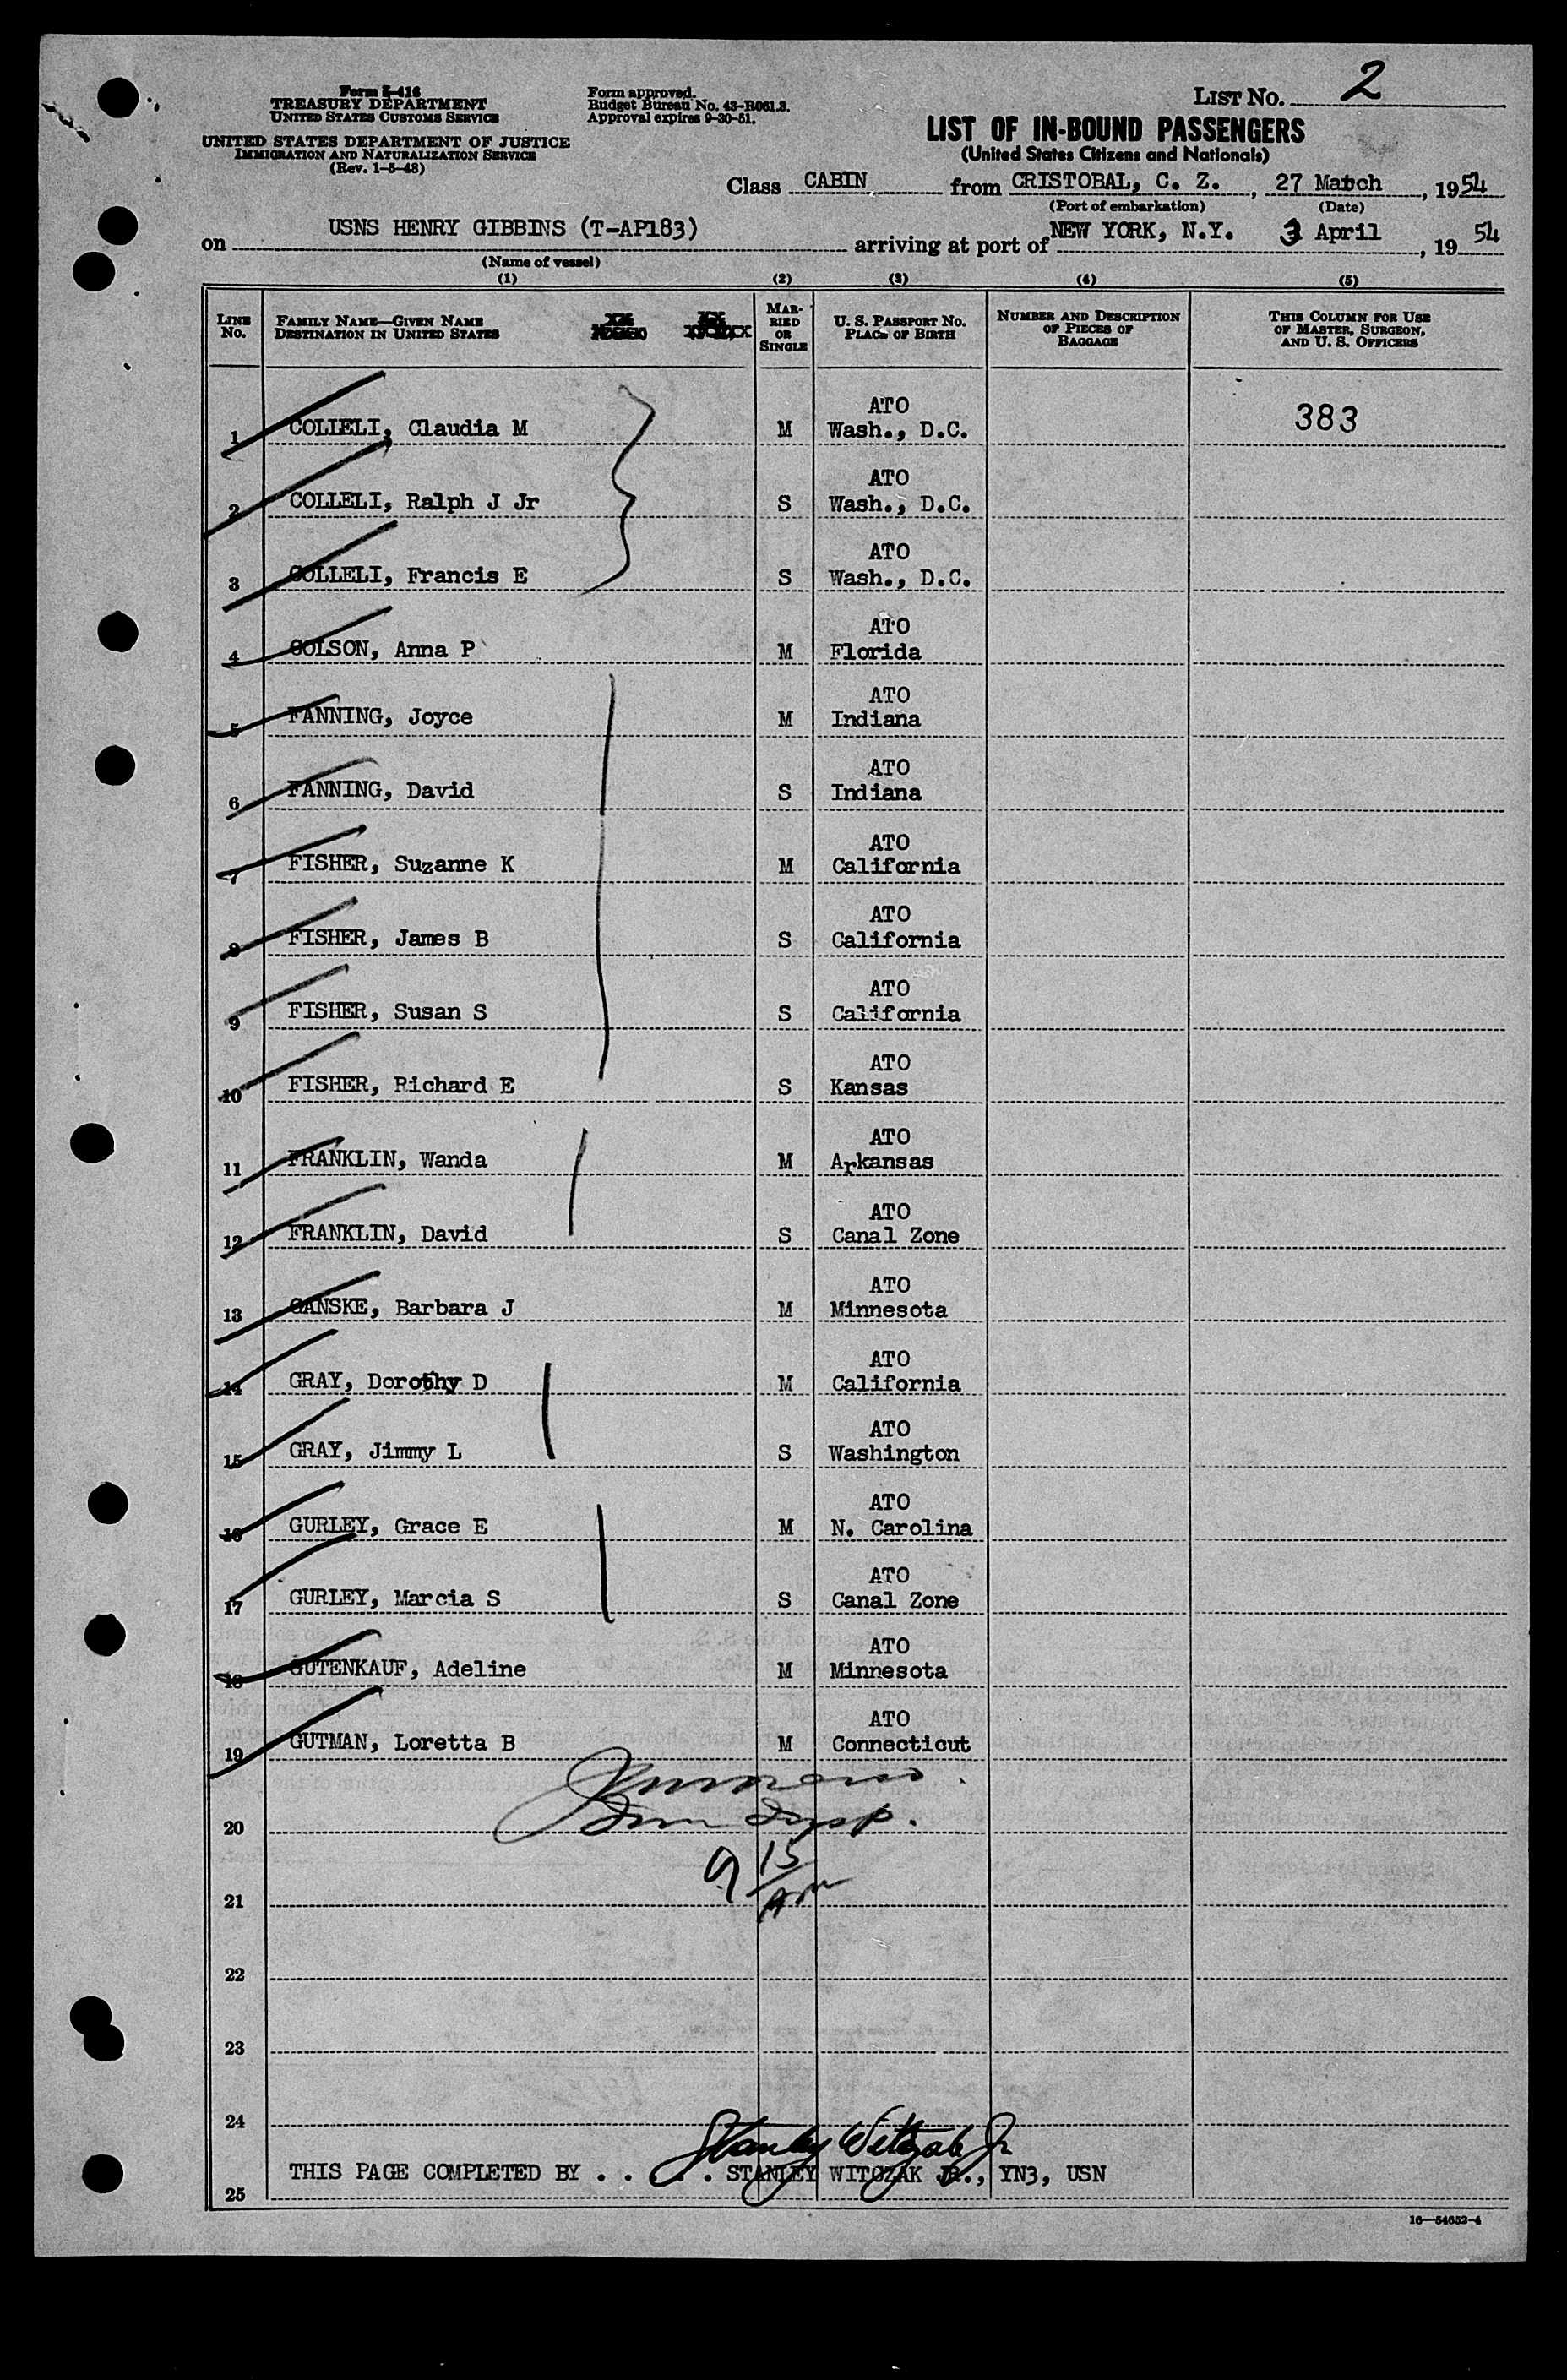 Form I-416
TREASURY DEPARTMENT
UNITED STATES CUSTOMS SERVICE
UNITED STATES DEPARTMENT OF JUSTICE
IMMIGRATION AND NATURALIZATION SERVICE
(Rev. 1-5-48)
Form approved.
Budget Bureau No. 43-R061.3.
Approval expires 9-30-51.
LIST No. 2
LIST OF IN-BOUND PASSENGERS
(United States Citizens and Nationals)
Class CABIN from CRISTOBAL, C. Z., 27 March, 1954
(Port of embarkation) (Date)
on USNS HENRY GIBBINS (T-AP183) arriving at port of NEW YORK, N.Y. 3 April, 1954
(Name of vessel)
(1) (2) (3) (4) (5)
LINE No.
FAMILY NAME—GIVEN NAME
DESTINATION IN UNITED STATES
MARRIED OR SINGLE
U. S. PASSPORT No.
PLACE OF BIRTH
NUMBER AND DESCRIPTION OF PIECES OF BAGGAGE
THIS COLUMN FOR USE OF MASTER, SURGEON, AND U. S. OFFICERS
ATO 383
1 COLLELI, Claudia M M Wash., D.C.
ATO
2 COLLELI, Ralph J Jr S Wash., D.C.
ATO
3 COLLELI, Francis E S Wash., D.C.
ATO
4 COLSON, Anna P M Florida
ATO
5 FANNING, Joyce M Indiana
ATO
6 FANNING, David S Indiana
ATO
7 FISHER, Suzanne K M California
ATO
8 FISHER, James B S California
ATO
9 FISHER, Susan S S California
ATO
10 FISHER, Richard E S Kansas
ATO
11 FRANKLIN, Wanda M Arkansas
ATO
12 FRANKLIN, David S Canal Zone
ATO
13 GANSKE, Barbara J M Minnesota
ATO
14 GRAY, Dorothy D M California
ATO
15 GRAY, Jimmy L S Washington
ATO
16 GURLEY, Grace E M N. Carolina
ATO
17 GURLEY, Marcia S S Canal Zone
ATO
18 GUTENKAUF, Adeline M Minnesota
ATO
19 GUTMAN, Loretta B M Connecticut
20
9 15 AM
21
22
23
24
Stanley Witczak Jr
THIS PAGE COMPLETED BY . . . . . STANLEY WITCZAK JR., YN3, USN
25
16—54652-4